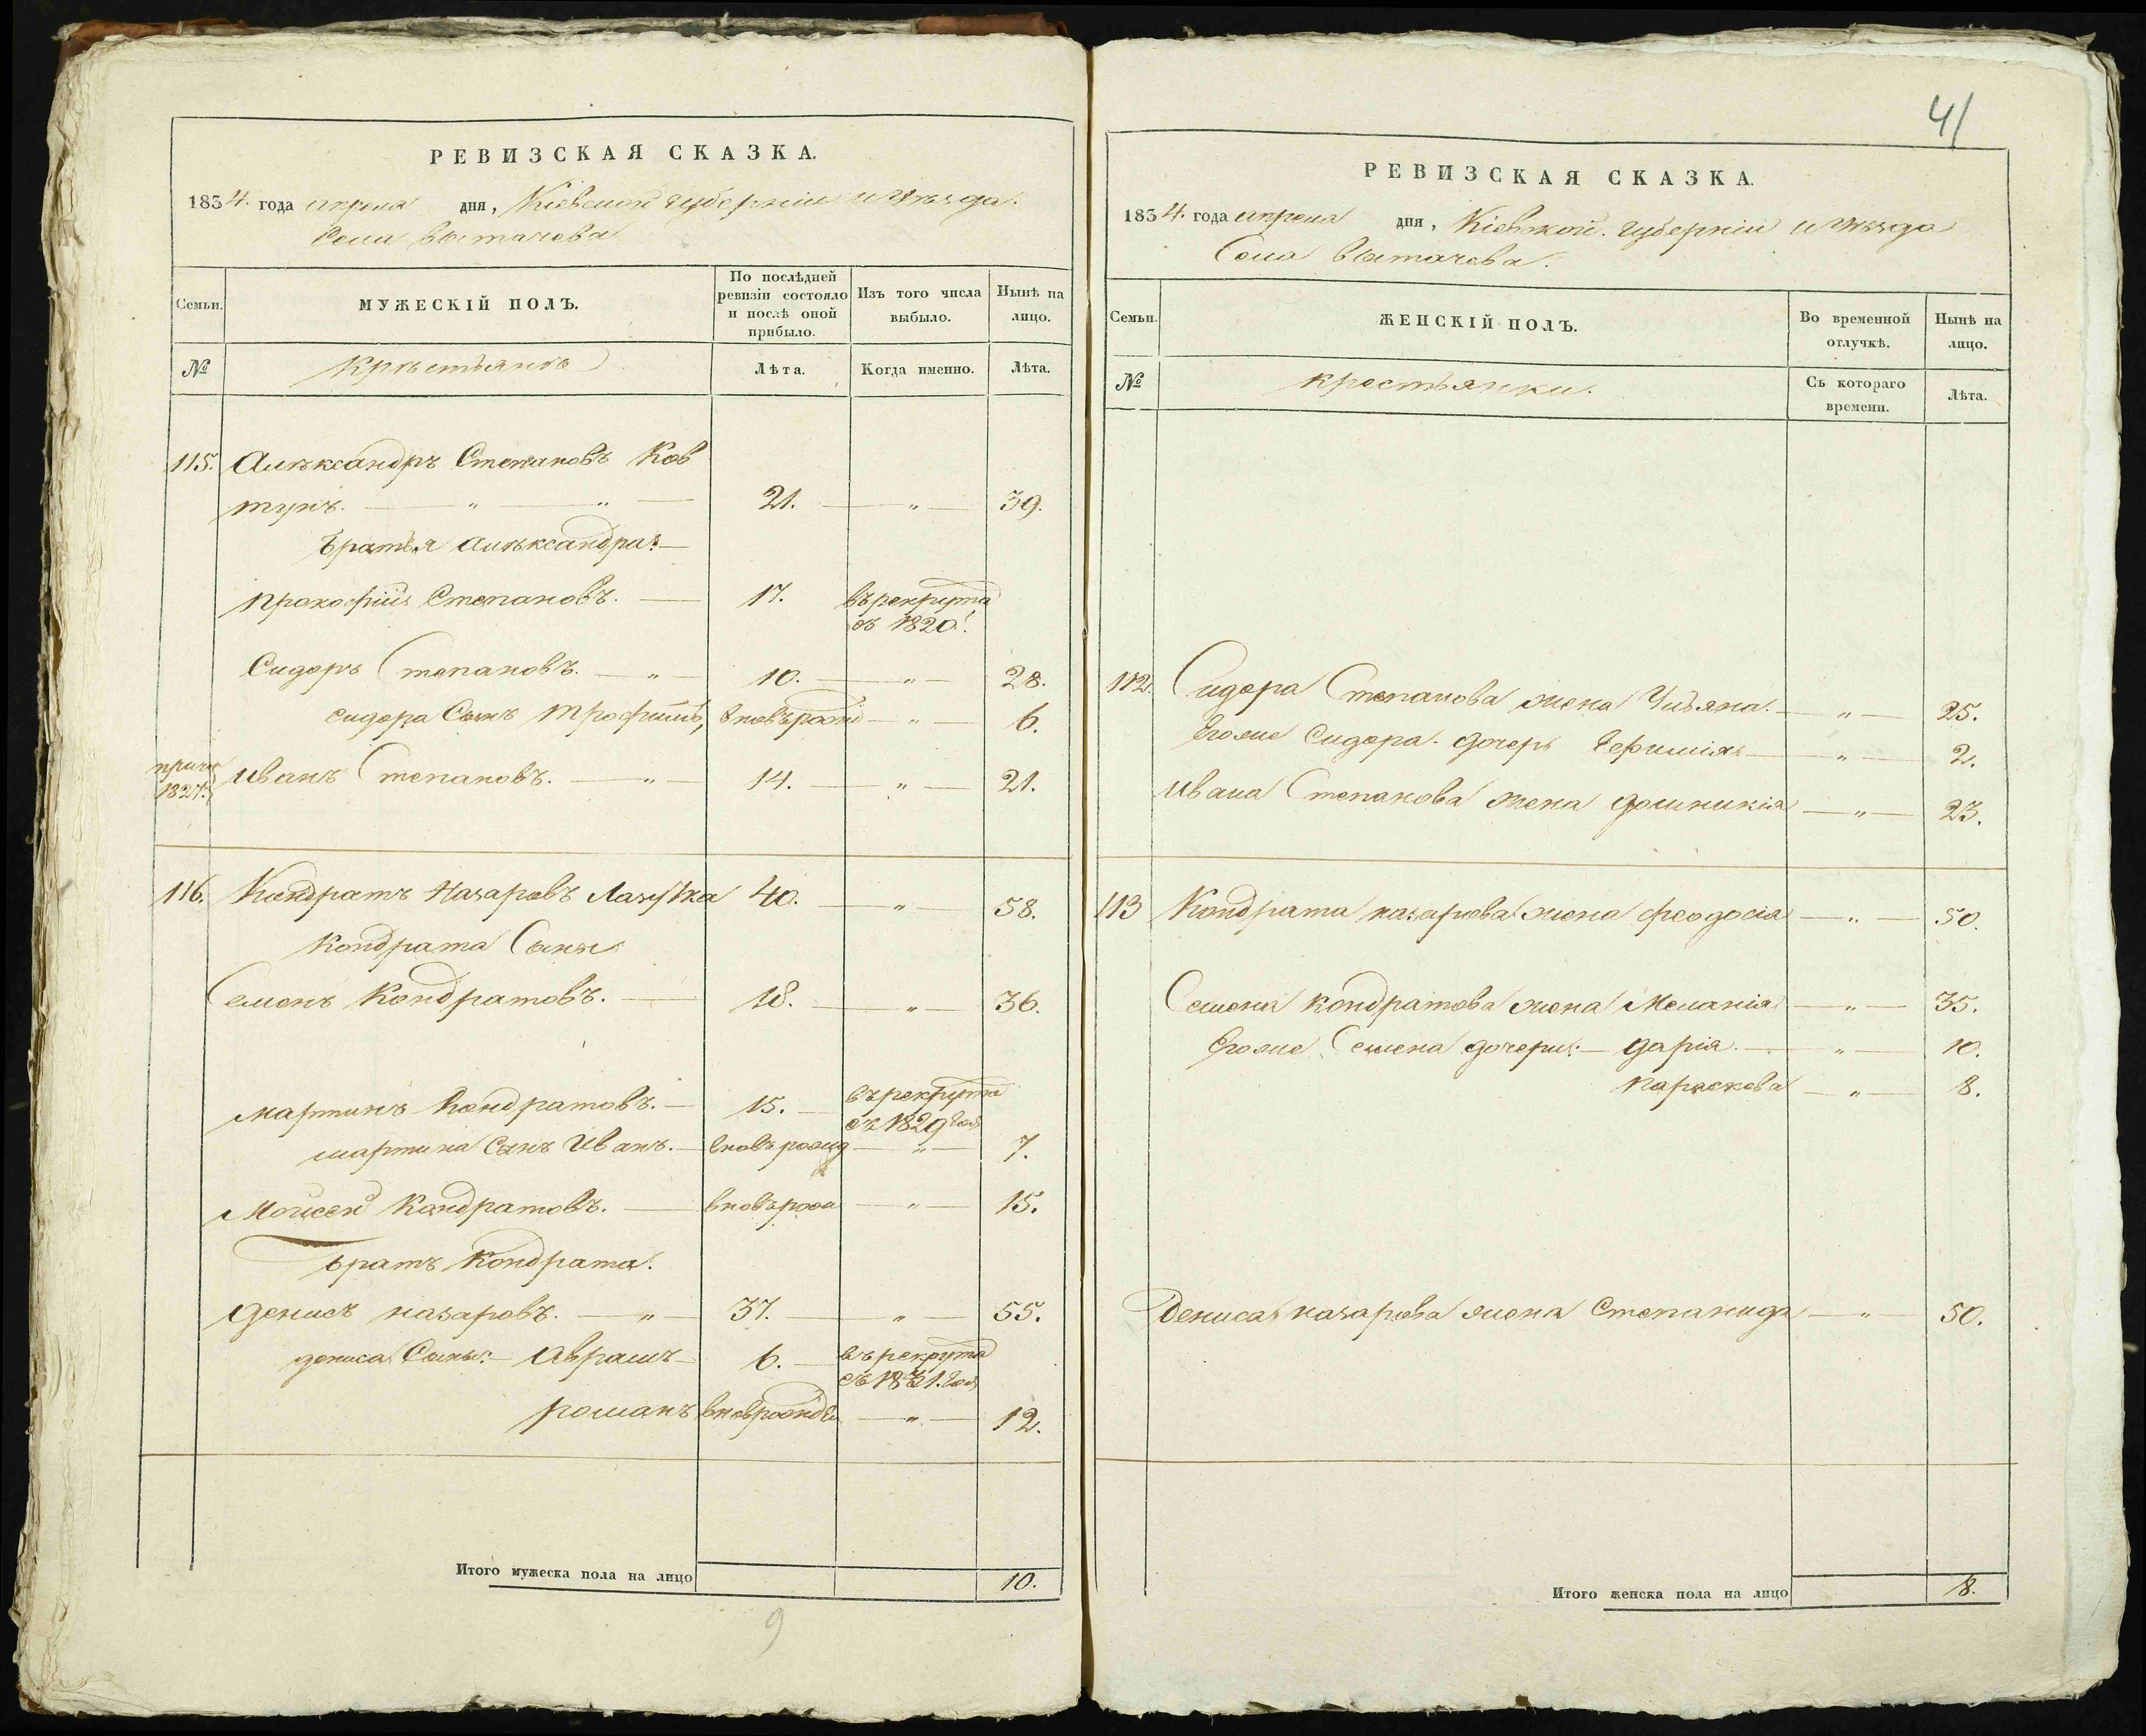 РЕВИЗСКАЯ СКАЗКА.
1834. года апреля дня, Кіевской губерніи и уѣзда.
Села Вытачева
Семьи. МУЖЕСКІЙ ПОЛЪ. По послѣдней ревизіи состояло и послѣ оной прибыло. Изъ того числа выбыло. Нынѣ на лицо.
№ Крѣстьянъ Лѣта. Когда именно. Лѣта.
115. Алѣксандръ Степановъ Ков
тунъ. — „ — „ — 21. — „ — 39.
Братья Алѣксандра: —
Прокофій Степановъ. — 17. въ рекрута
съ 1820.
Сидоръ Степановъ. — „ — 10. — „ — 28.
Сидора Сынъ Трофимъ, вновь рожд — „ — 6.
1827. Иванъ Степановъ. — „ — 14. — „ — 21.
116. Кондратъ Назаровъ 40. — „ — 58.
Кондрата Сыны
Семенъ Кондратовъ. — 18. — „ — 36.
Мартинъ Кондратовъ. — 15. — въ рекрута
съ 1829 года
Мартина Сынъ Иванъ. — вновь рожд — „ — 7.
Моисей Кондратовъ. — вновь рож — „ — 15.
Братъ Кондрата.
Денисъ Назаровъ. — „ — 37. — „ — 55.
Дениса Сыны: — Аврамъ — 6. — въ рекрута
съ 1831. года
Романъ вновь рожд — „ — 12.
Итого мужеска пола на лицо 10.
9
41
РЕВИЗСКАЯ СКАЗКА.
1834. года апреля дня, Кіевской. Губерніи и уѣзда
Села Вытачева.
Семьи. ЖЕНСКІЙ ПОЛЪ. Во временной отлучкѣ. Нынѣ на лицо.
№ Крестьянки. Съ котораго времени. Лѣта.
112. Сидора Степанова жена Ульяна. — „ — 25.
Егоже Сидора. дочерь Ефимія — „ — 2.
Ивана Степанова жена Домникія — „ — 23.
113 Кондрата Назарова жена Феодосія — „ — 50.
Семена Кондратова жена Меланія — „ — 35.
Егоже Семена дочери: — Дарія. — „ — 10.
Параскева — „ — 8.
Дениса Назарова жена Степанида — „ — 50.
Итого женска пола на лицо 8.